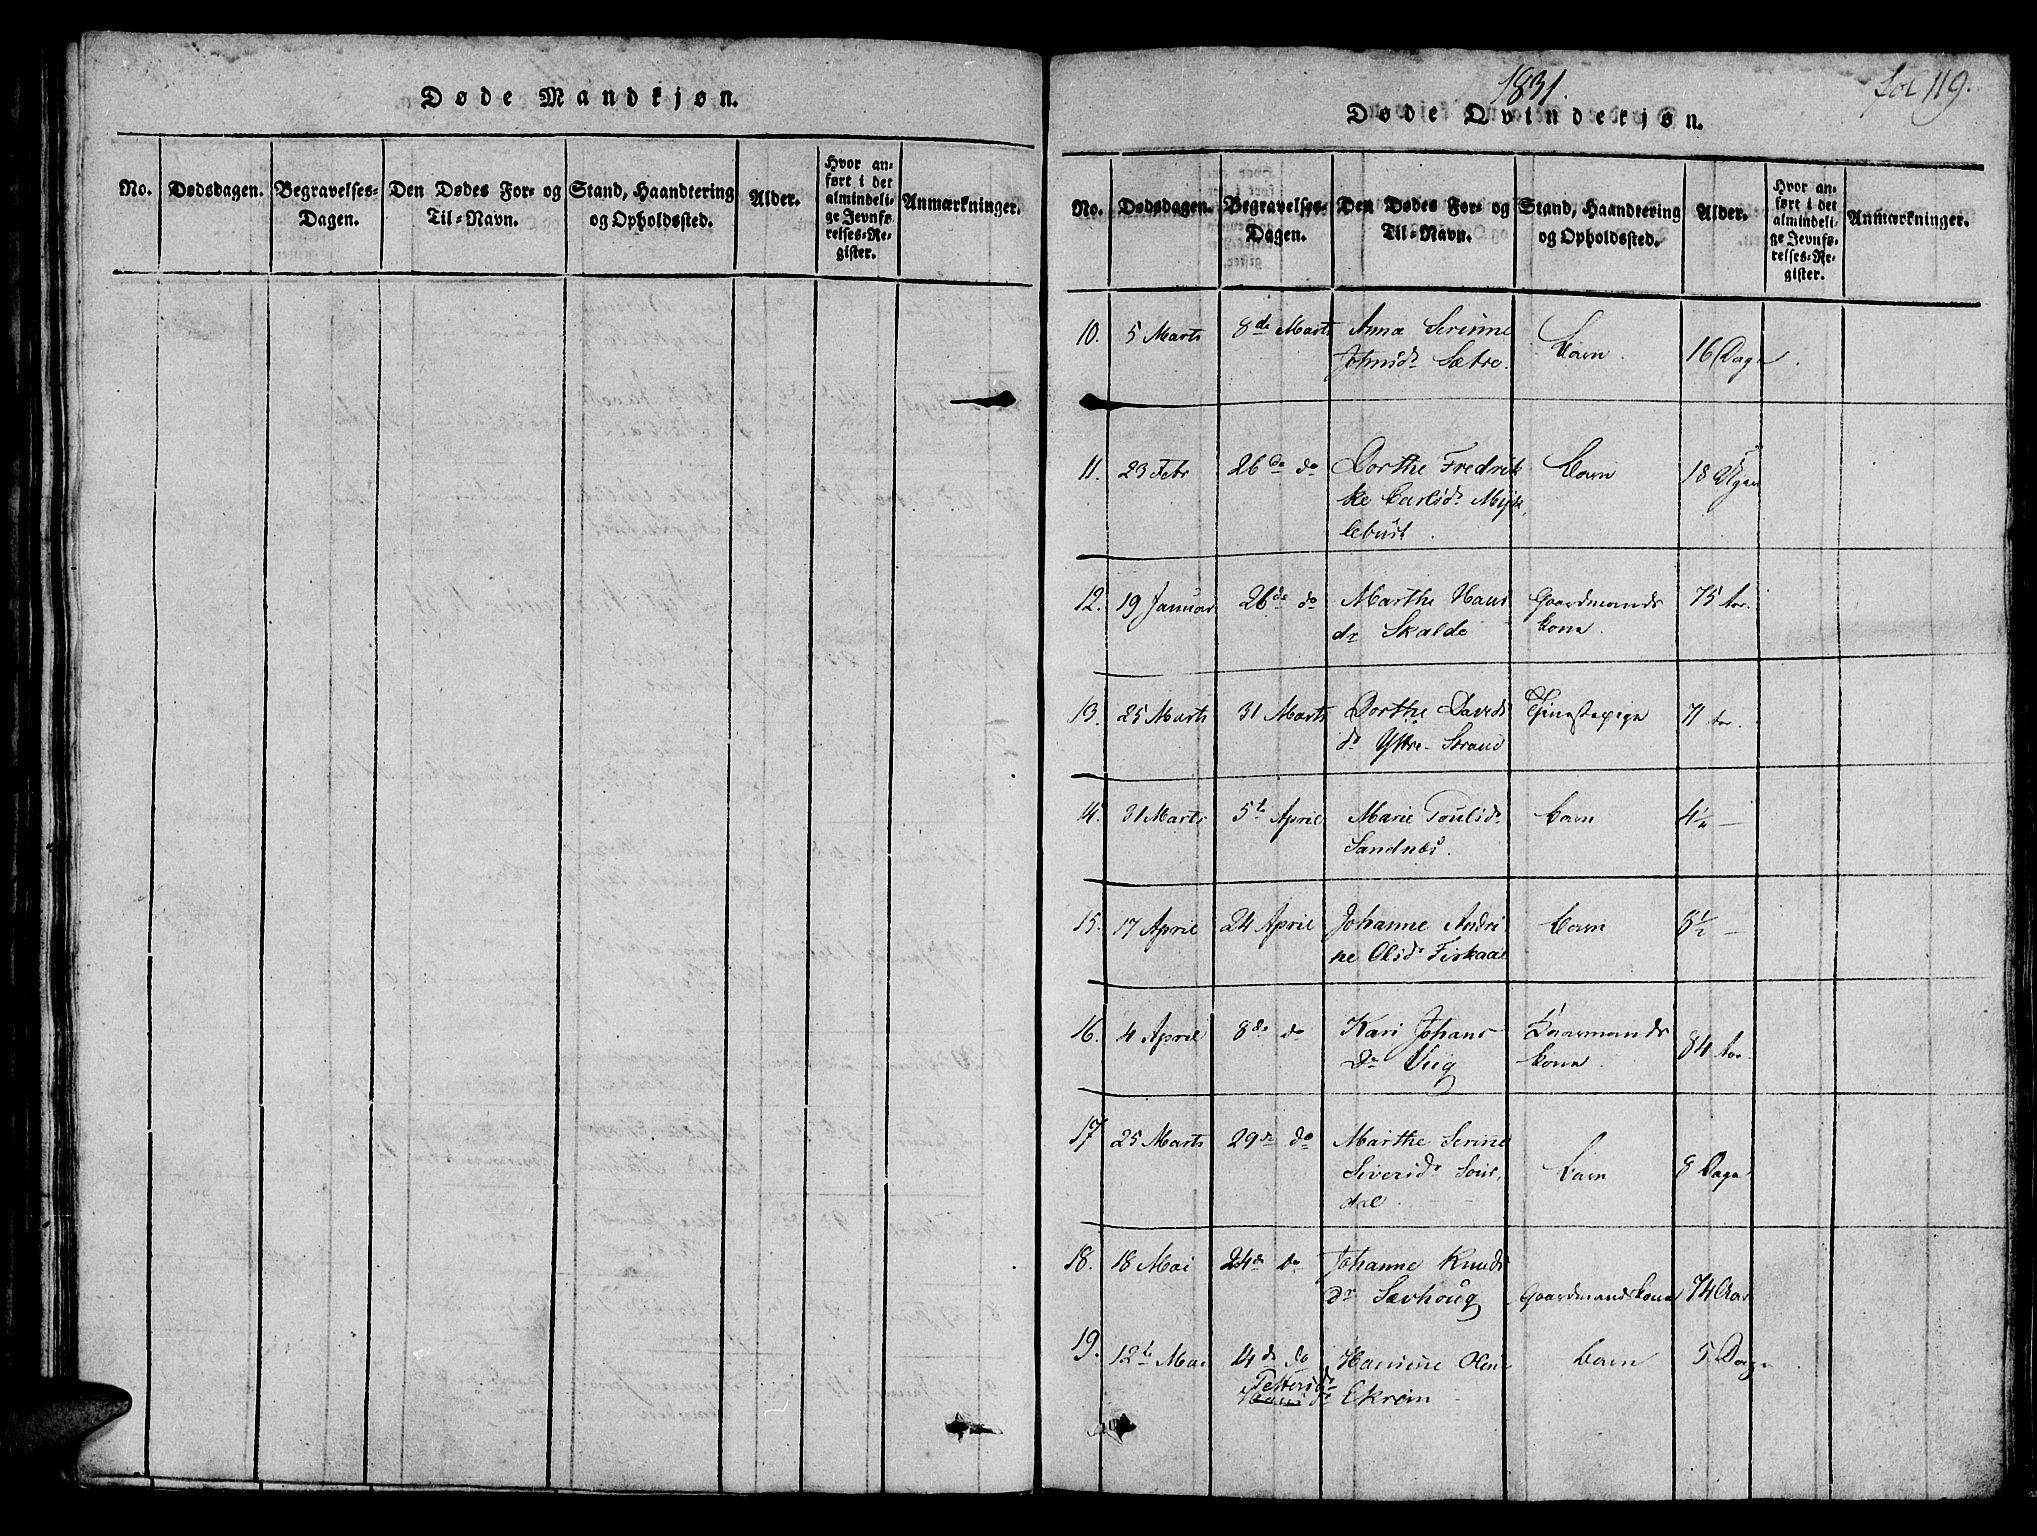 Døde Mandkjøn.
No. Dødsdagen. Begravelses-Dagen. Den Dødes For- og Til-Navn. Stand, Haandtering og Opholdssted. Alder. Hvor anført i det almindelige Jevnførelses-Register. Anmærkninger.
1831.
fol 119.
Døde Qvindekjøn.
No. Dødsdagen. Begravelses-Dagen. Den Dødes For- og Til-Navn. Stand, Haandtering og Opholdssted. Alder. Hvor anført i det almindelige Jevnførelses-Register. Anmærkninger.
10. 5 Marts 8de Marts Anna Serinne Barn. 16 Dage
Johnsdr Sætre.
11. 23 Febr 26de do Dorthe Fredrik Barn 18 Uger
ke Carlsdr Myk
lebust.
12. 19 Januar 26de do Marthe Hans Gaardmands 75 Aar.
dr Skalde kone.
13. 25 Marts 31 Marts Dorthe Davids Tjenestepige 71 Aar.
dr Yttre-Strand
14. 31 Marts 5te April Marie Poulsdr Barn 4½ —
Sandnæs.
15. 17 April 24 April Johanne Andri Barn 8½ —
ne Olsdr Fiskaae
16. 4 April 8de do Kari Johans Gaarmands 84 Aar.
Dr Viig kone.
17 25 Marts 29de do Marthe Serine
Siversdr Barn 8 Dage
dal.
18. 18 Mai 24de do Johanne Knuds
dr Sævhoug Gaardmandskone 74 Aar
19. 12te Mai 14de do Hansine Oline Barn 5 Dage
Pettersdr
Ekrem